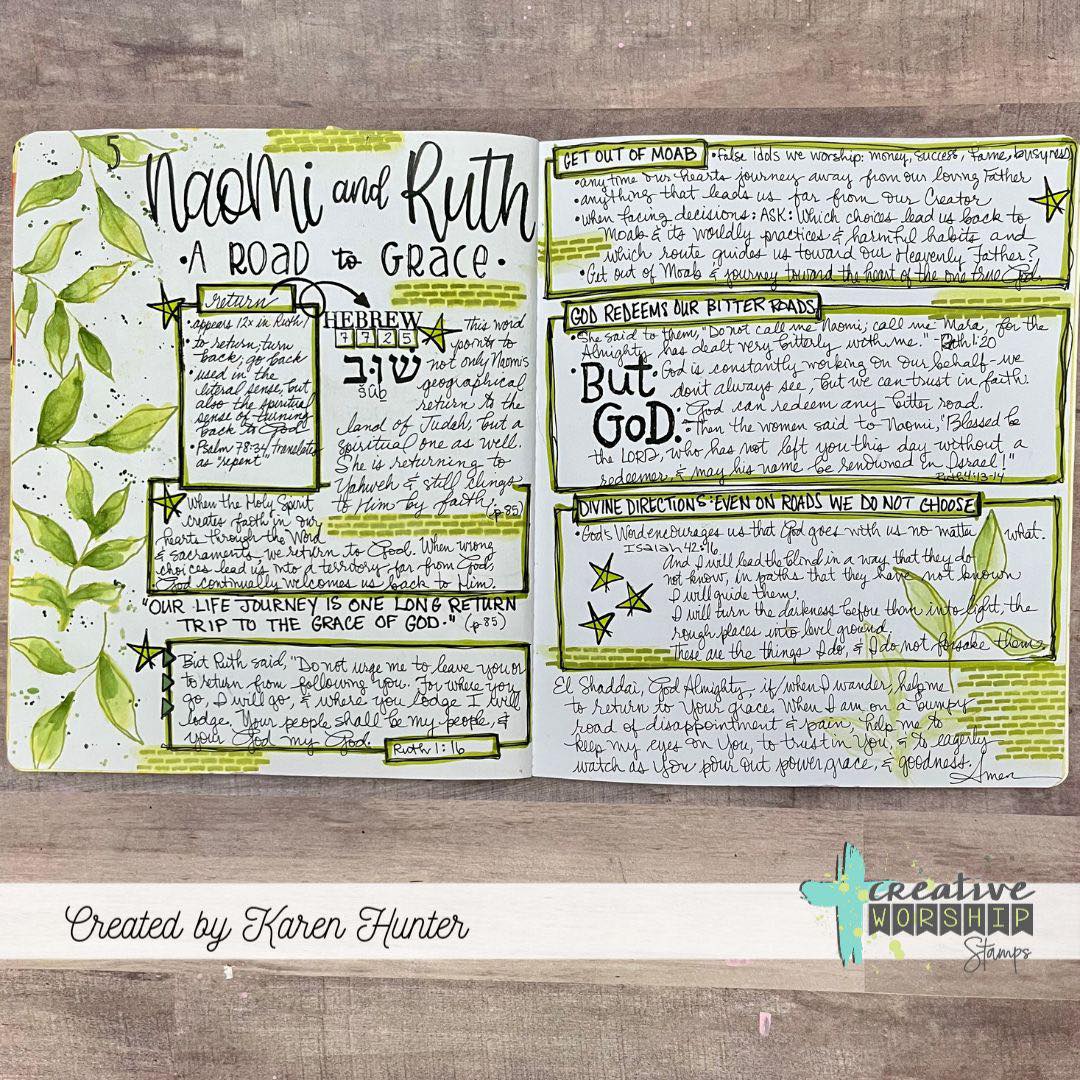 5
Naomi and Ruth
•A ROAD to GRACE•
return
•appears 12x in Ruth 1
•to return, turn
back; go back
•used in the
literal sense, but
also the spiritual
sense of turning
back to God
•Psalm 78:34 translates
as "repent"
HEBREW
7725
שׁוּב
sûb
This word
points to
not only Naomi's
geographical
return to the
land of Judah, but a
spiritual one as well.
She is returning to
Yahweh & still clings
to Him by faith.
(p85)
When the Holy Spirit
creates faith in our
hearts through the Word
& sacraments, we return to God. When wrong
choices lead us into a territory far from God,
God continually welcomes us back to Him.
"OUR LIFE JOURNEY IS ONE LONG RETURN
TRIP TO THE GRACE OF GOD." (p85)
But Ruth said, "Do not urge me to leave you or
to return from following you. For where you
go, I will go, & where you lodge I will
lodge. Your people shall be my people, &
your God my God.
Ruth 1:16
GET OUT OF MOAB
•False idols we worship: money, success, fame, busyness
•any time our hearts journey away from our loving Father
•anything that leads us far from our Creator
•when facing decisions: ASK: Which choices lead us back to
Moab & its worldly practices & harmful habits, and
which route guides us toward our Heavenly Father?
•Get out of Moab & journey toward the heart of the one true God.
GOD REDEEMS OUR BITTER ROADS
•She said to them, "Do not call me Naomi; call me Mara, for the
Almighty has dealt very bitterly with me." - Ruth 1:20
But GOD.
•God is constantly working on our behalf - we
don't always see, but we can trust in faith.
•God can redeem any bitter road.
•Then the women said to Naomi, "Blessed be
the LORD, who has not left you this day without a
redeemer, & may his name be renowned in Israel!"
Ruth 4:13-14
DIVINE DIRECTIONS: EVEN ON ROADS WE DO NOT CHOOSE
•God's Word encourages us that God goes with us no matter what.
Isaiah 42:16
And I will lead the blind in a way that they do
not know, in paths that they have not known
I will guide them.
I will turn the darkness before them into light, the
rough places into level ground.
These are the things I do, & I do not forsake them.
El Shaddai, God Almighty, if/when I wander, help me
to return to Your grace. When I am on a bumpy
road of disappointment & pain, help me to
keep my eyes on You, to trust in You, & to eagerly
watch as You pour out power, grace, & goodness.
Amen
Created by Karen Hunter
creative
WORSHIP
Stamps